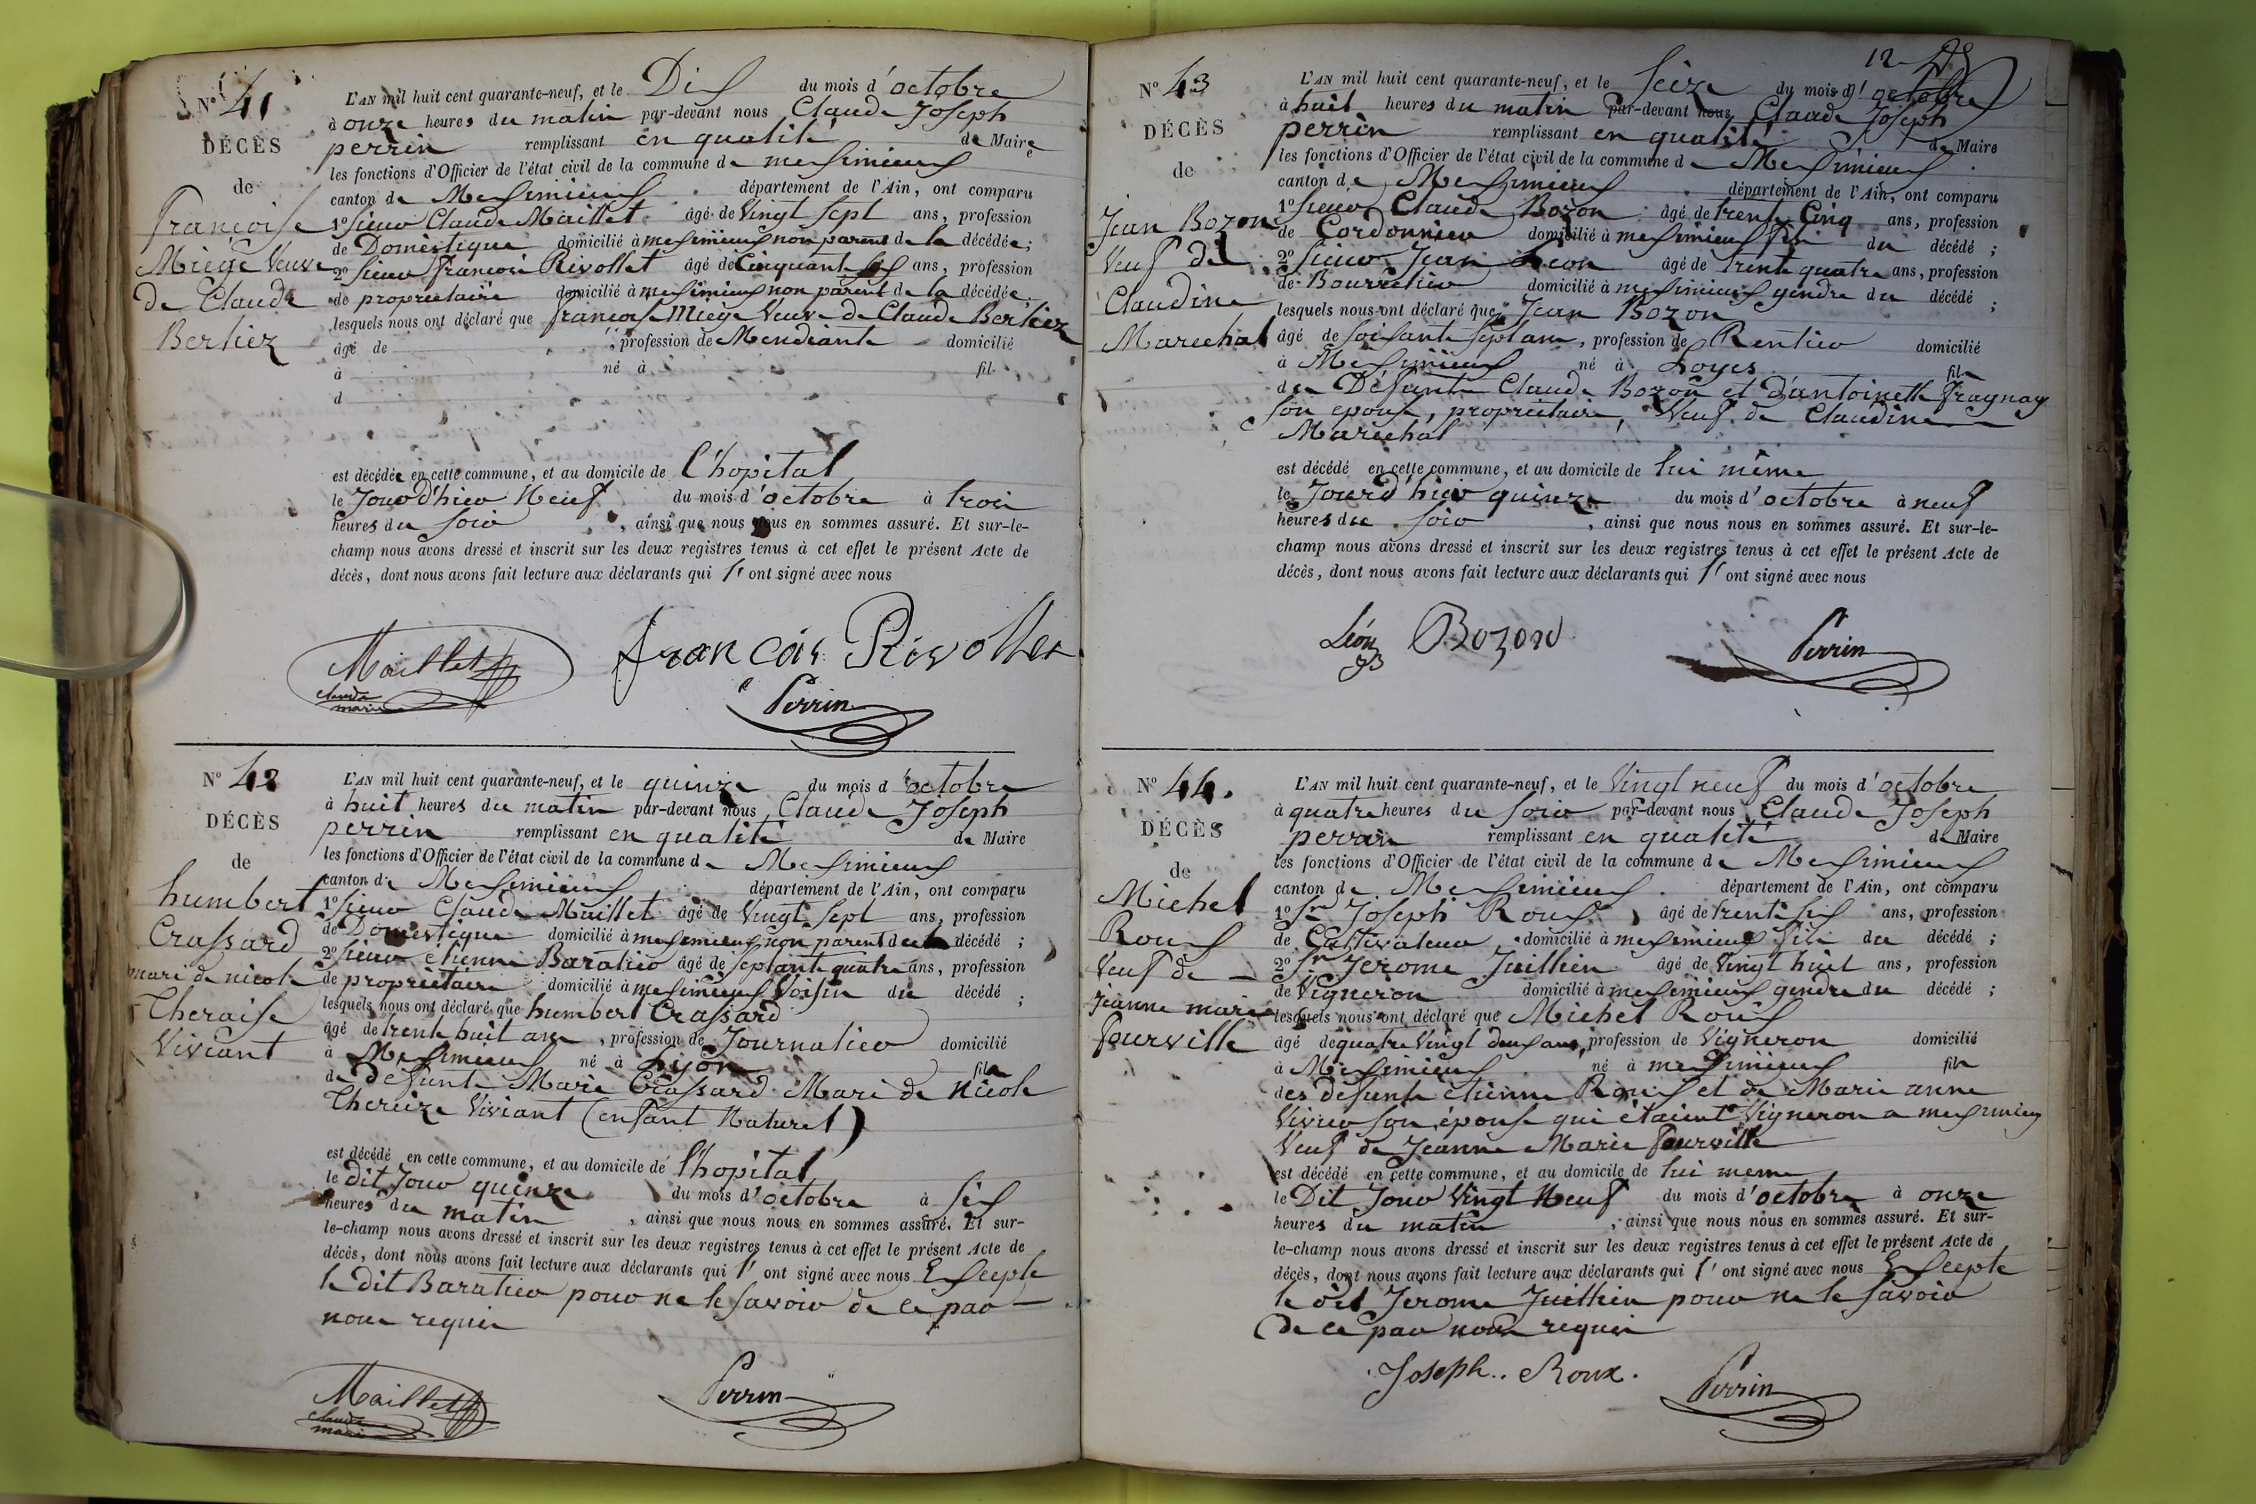 N° 41
DÉCÈS
de
françoise
Miège Veuve
de Claude
Berliez
L'AN mil huit cent quarante-neuf, et le Dix du mois d'octobre
à onze heures du matin par-devant nous Claude Joseph
perrin remplissant en qualité de Maire
les fonctions d'Officier de l'état civil de la commune de meximieux
canton de Meximieux département de l'Ain, ont comparu
1° Sieur Claude Maillet âgé de Vingt Sept ans, profession
de Domestique domicilié à meximieux non parent de la décédée;
2° Sieur françois Rivollet âgé de Cinquante six ans, profession
de propriétaire domicilié à meximieux non parent de la décédée;
lesquels nous ont déclaré que francoise Miège Veuve de Claude Berliez
âgé de , profession de Mendiante domicilié
à né à fil
d
est décédée en cette commune, et au domicile de l'hopital
le Jour d'hier Neuf du mois d'octobre à trois
heures du soir , ainsi que nous nous en sommes assuré. Et sur-le-
champ nous avons dressé et inscrit sur les deux registres tenus à cet effet le présent Acte de
décès, dont nous avons fait lecture aux déclarants qui l'ont signé avec nous
Maillet
claude
marie
francois Rivollet
Perrin
N° 42
DÉCÈS
de
humbert
Crassard
mari de nicole
Theraise
Viviant
L'AN mil huit cent quarante-neuf, et le quinze du mois d'octobre
à huit heures du matin par-devant nous Claude Joseph
perrin remplissant en qualité de Maire
les fonctions d'Officier de l'état civil de la commune de Meximieux
canton de Meximieux département de l'Ain, ont comparu
1° Sieur Claude Maillet âgé de Vingt Sept ans, profession
de Domestique domicilié à meximieux non parent du décédé;
2° Sieur etienne Baratier âgé de septante quatre ans, profession
de propriétaire domicilié à meximieux Voisin du décédé;
lesquels nous ont déclaré que humbert Crassard
âgé de trente huit ans, profession de Journalier domicilié
à Meximieux né à Lyon fils
de defunte Marie Crassard Mari de nicole
Thereize Viviant (enfant Naturel)
est décédé en cette commune, et au domicile de l'hopital
le dit Jour quinze du mois d'octobre à six
heures du matin , ainsi que nous nous en sommes assuré. Et sur-
le-champ nous avons dressé et inscrit sur les deux registres tenus à cet effet le présent Acte de
décès, dont nous avons fait lecture aux déclarants qui l'ont signé avec nous Excepte
le dit Baratier pour ne le savoir de ce par
nous requis
Maillet
claude
marie
Perrin
12
N° 43
DÉCÈS
de
Jean Bozon
Veuf de
Claudine
Marechal
L'AN mil huit cent quarante-neuf, et le Seize du mois d'octobre
à huit heures du matin par-devant nous Claude Joseph
perrin remplissant en qualité de Maire
les fonctions d'Officier de l'état civil de la commune de Meximieux
canton de Meximieux département de l'Ain, ont comparu
1° Sieur Claude Bozon âgé de trente Cinq ans, profession
de Cordonnier domicilié à meximieux fils du décédé;
2° Sieur Jean Léon âgé de trente quatre ans, profession
de Bourrelier domicilié à meximieux gendre du décédé;
lesquels nous ont déclaré que Jean Bozon
âgé de soixante sept ans, profession de Rentier domicilié
à Meximieux né à Loyes fils
de Défunts Claude Bozon et d'antoinette fragnay
son epouse, propriétaire, Veuf de Claudine
Marechal
est décédé en cette commune, et au domicile de lui même
le Jour d'hier quinze du mois d'octobre à neuf
heures du soir , ainsi que nous nous en sommes assuré. Et sur-le-
champ nous avons dressé et inscrit sur les deux registres tenus à cet effet le présent Acte de
décès, dont nous avons fait lecture aux déclarants qui l'ont signé avec nous
Léon Bozon Perrin
N° 44.
DÉCÈS
de
Michel
Roux
Veuf de
jeanne marie
fourville
L'AN mil huit cent quarante-neuf, et le Vingt neuf du mois d'octobre
à quatre heures du soir par-devant nous Claude Joseph
perrin remplissant en qualité de Maire
les fonctions d'Officier de l'état civil de la commune de Meximieux
canton de Meximieux département de l'Ain, ont comparu
1° Sr Joseph Roux, âgé de trente six ans, profession
de Cultivateur, domicilié à meximieux fils du décédé;
2° Sr Jerome Juillien âgé de Vingt huit ans, profession
de Vigneron domicilié à meximieux gendre du décédé;
lesquels nous ont déclaré que Michel Roux
âgé de quatre Vingt deux ans, profession de Vigneron domicilié
à Meximieux né à meximieux fils
des défunts etienne Roux et de Marie anne
Vivier son épouse qui étaient Vigneron a meximieux
Veuf de Jeanne Marie fourville
est décédé en cette commune, et au domicile de lui meme
le Dit Jour Vingt Neuf du mois d'octobre à onze
heures du matin , ainsi que nous nous en sommes assuré. Et sur-
le-champ nous avons dressé et inscrit sur les deux registres tenus à cet effet le présent Acte de
décès, dont nous avons fait lecture aux déclarants qui l'ont signé avec nous Excepte
le dit Jerome Juillien pour ne le savoir
de ce par nous requis
Joseph.. Roux. Perrin